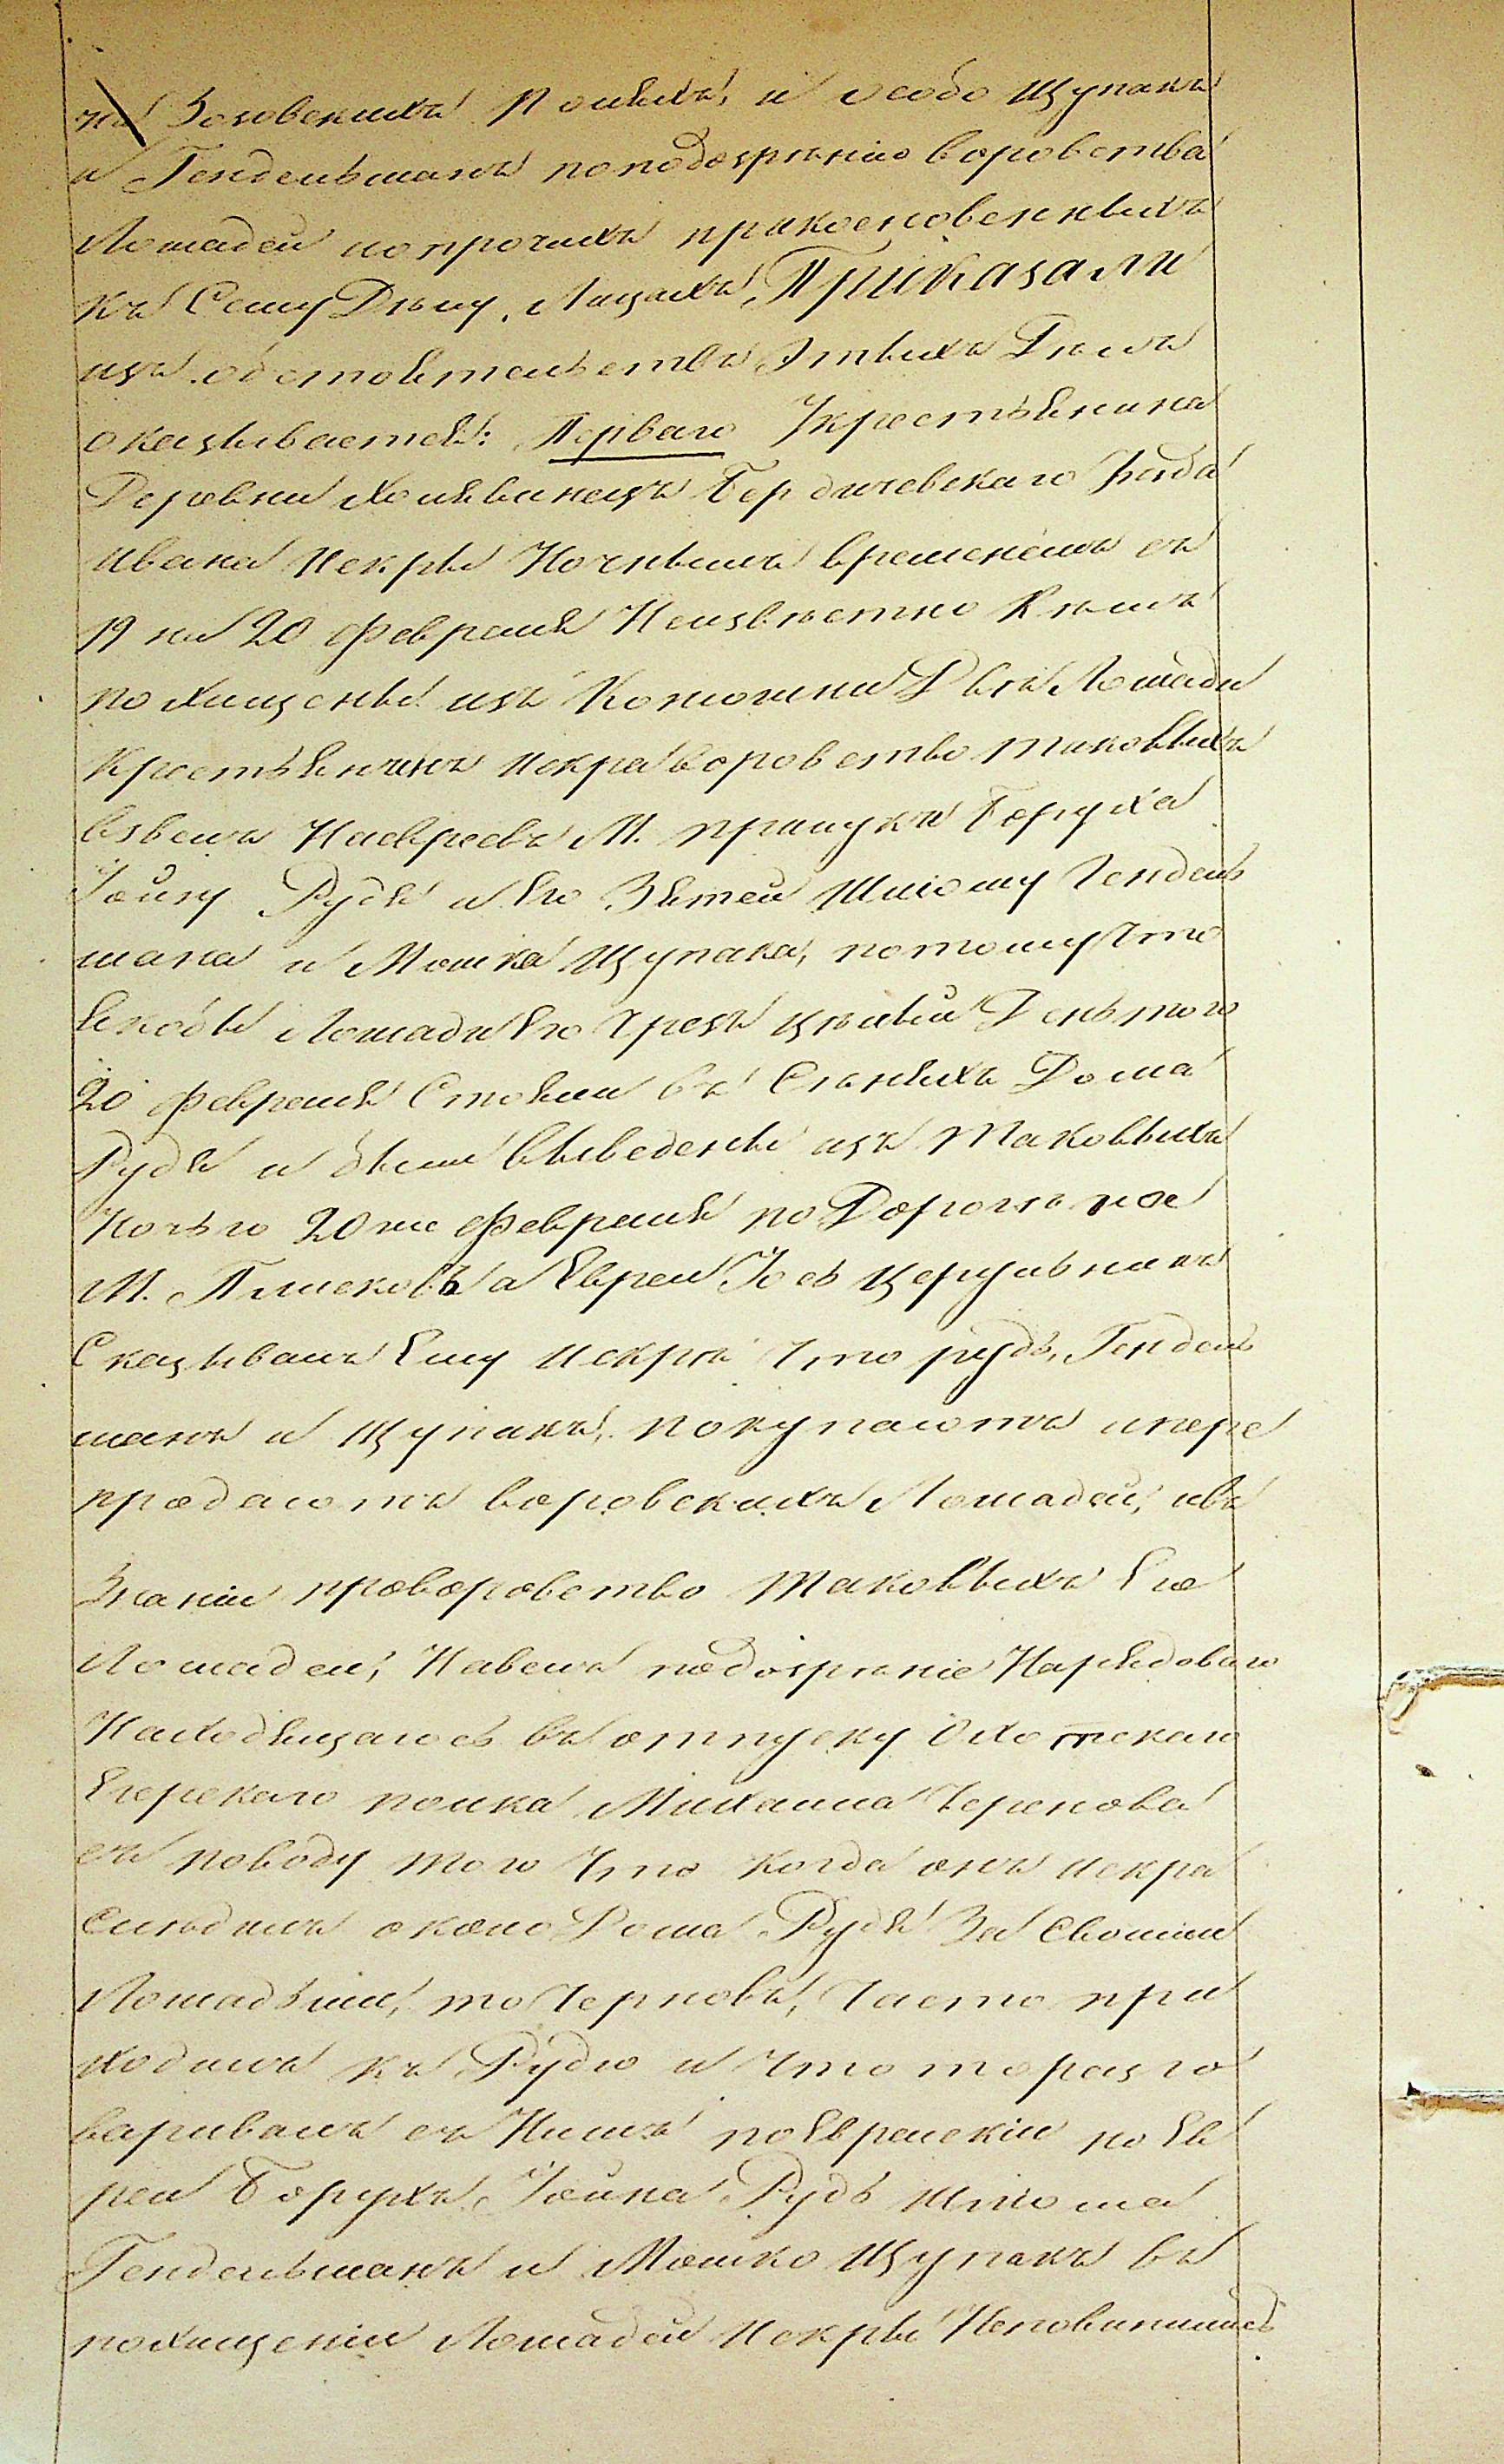 на Зозовскихъ Поляхъ, и особо Щупакъ
и Гендельманъ по подозрѣнію воровства
Лошадей и о прочихъ прикосновенныхъ
къ Сему Дѣлу, Лицахъ, Приказали
изъ обстоятельствъ Этыхъ Дѣлъ
оказывается: Перваго Укрестьянина
Деревни Холявинецъ Бердичевскаго уѣзда
Ивана Искры Ночнымъ временемъ съ
19 на 20 февраля Неизвѣстно Кѣмъ
похищены изъ Конюшни Двѣ Лошади
Крестьянинъ Искра воровство таковыхъ
взвелъ На Евреевъ М. прилукъ Боруха
Іойну Рудя и Его Зятей Шлiому Гендель
мана и Мошка Щупака, потому Что
якобы Лошади Его Чрезъ цѣлый День того
20 февраля Стояли въ Сѣняхъ Дома
Рудя и были выведены изъ Таковыхъ
Ночью 20 же Февраля по Дорогѣ на
М. Плисковъ а Еврей Іось Церульникъ
Сказывалъ Ему Искрѣ Что рудь, Гендель
манъ и Щупакъ, покупаютъ и пере
продаютъ воровскихъ Лошадей, и въ
Знаніи про воровство Таковыхъ Его
Лошадей, Навелъ подозрѣніе На рядоваго
Находящагось въ отпуску Охотскаго
Егерскаго полка Михаила Чернова
съ поводу того Что когда онъ Искра
Слѣдилъ около Дома Рудя За Своими
Лошадьми, то Черновъ, Часто при
ходилъ къ Рудю и Что то разго
варивалъ съ Нимъ по Еврейскіи но Ев
реи Борухъ Іойна Рудь Шлiома
Гендельманъ и Мошко Щупакъ въ
похищеніи Лошадей Искры Неповинились